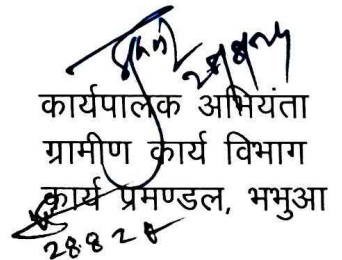 कार्यपालक अभियंता
ग्रामीण कार्य विभाग
कार्य प्रमण्डल, भभुआ
28.8.2